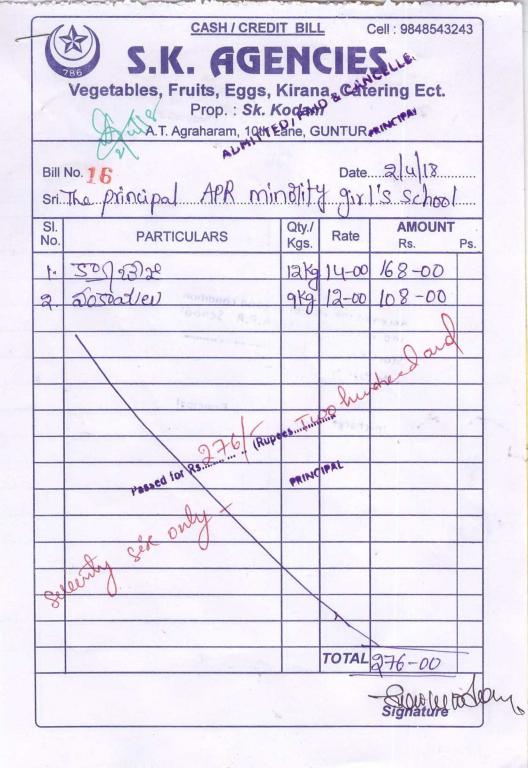 CASH / CREDIT BILL
Cell : 9848543243
786
S.K. AGENCIES
Vegetables, Fruits, Eggs, Kirana, Catering Ect.
Prop. : Sk. Kodam
A.T. Agraharam, 10th Lane, GUNTUR
ADMITTED, PAID & CANCELLE.
PRINCIPAL
Bill No. 16
Date 2/4/18
Sri. The principal APR minority girl's school
Sl. No. PARTICULARS Qty./ Kgs. Rate AMOUNT Rs. Ps.
1. 12kg 14-00 168-00
2. వంకాయలు 9kg 12-00 108-00
Passed for Rs. 276/- (Rupees Two hundred and
seventy six only -
PRINCIPAL
TOTAL 276-00
Signature